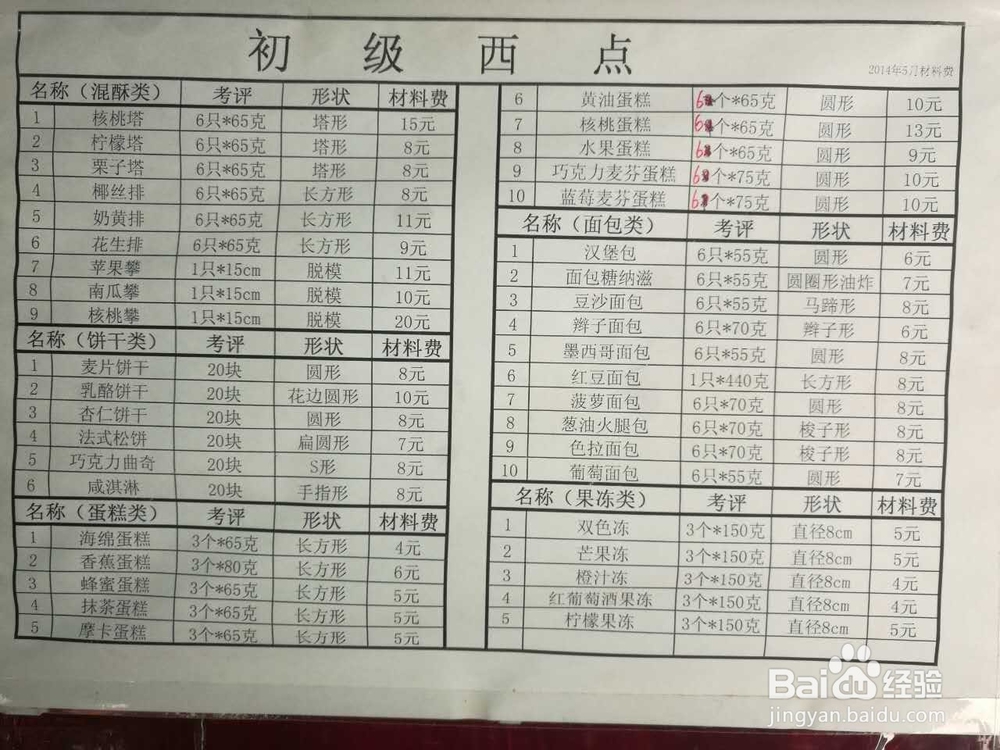 初级西点
2014年5月材料费
名称（混酥类） 考评 形状 材料费
1 核桃塔 6只*65克 塔形 15元
2 柠檬塔 6只*65克 塔形 8元
3 栗子塔 6只*65克 塔形 8元
4 椰丝排 6只*65克 长方形 8元
5 奶黄排 6只*65克 长方形 11元
6 花生排 6只*65克 长方形 9元
7 苹果攀 1只*15cm 脱模 11元
8 南瓜攀 1只*15cm 脱模 10元
9 核桃攀 1只*15cm 脱模 20元
名称（饼干类） 考评 形状 材料费
1 麦片饼干 20块 圆形 8元
2 乳酪饼干 20块 花边圆形 10元
3 杏仁饼干 20块 圆形 8元
4 法式松饼 20块 扁圆形 7元
5 巧克力曲奇 20块 S形 8元
6 咸淇淋 20块 手指形 8元
名称（蛋糕类） 考评 形状 材料费
1 海绵蛋糕 3个*65克 长方形 4元
2 香蕉蛋糕 3个*80克 长方形 6元
3 蜂蜜蛋糕 3个*65克 长方形 5元
4 抹茶蛋糕 3个*65克 长方形 5元
5 摩卡蛋糕 3个*65克 长方形 5元
6 黄油蛋糕 6个*65克 圆形 10元
7 核桃蛋糕 6个*65克 圆形 13元
8 水果蛋糕 6个*65克 圆形 9元
9 巧克力麦芬蛋糕 6个*75克 圆形 10元
10 蓝莓麦芬蛋糕 6个*75克 圆形 10元
名称（面包类） 考评 形状 材料费
1 汉堡包 6只*55克 圆形 6元
2 面包糖纳滋 6只*55克 圆圈形油炸 7元
3 豆沙面包 6只*55克 马蹄形 8元
4 辫子面包 6只*70克 辫子形 6元
5 墨西哥面包 6只*55克 圆形 8元
6 红豆面包 1只*440克 长方形 8元
7 菠萝面包 6只*70克 圆形 8元
8 葱油火腿包 6只*70克 梭子形 8元
9 色拉面包 6只*70克 梭子形 8元
10 葡萄面包 6只*55克 圆形 7元
名称（果冻类） 考评 形状 材料费
1 双色冻 3个*150克 直径8cm 5元
2 芒果冻 3个*150克 直径8cm 5元
3 橙汁冻 3个*150克 直径8cm 4元
4 红葡萄酒果冻 3个*150克 直径8cm 4元
5 柠檬果冻 3个*150克 直径8cm 5元
Baidu经验
jingyan.baidu.com